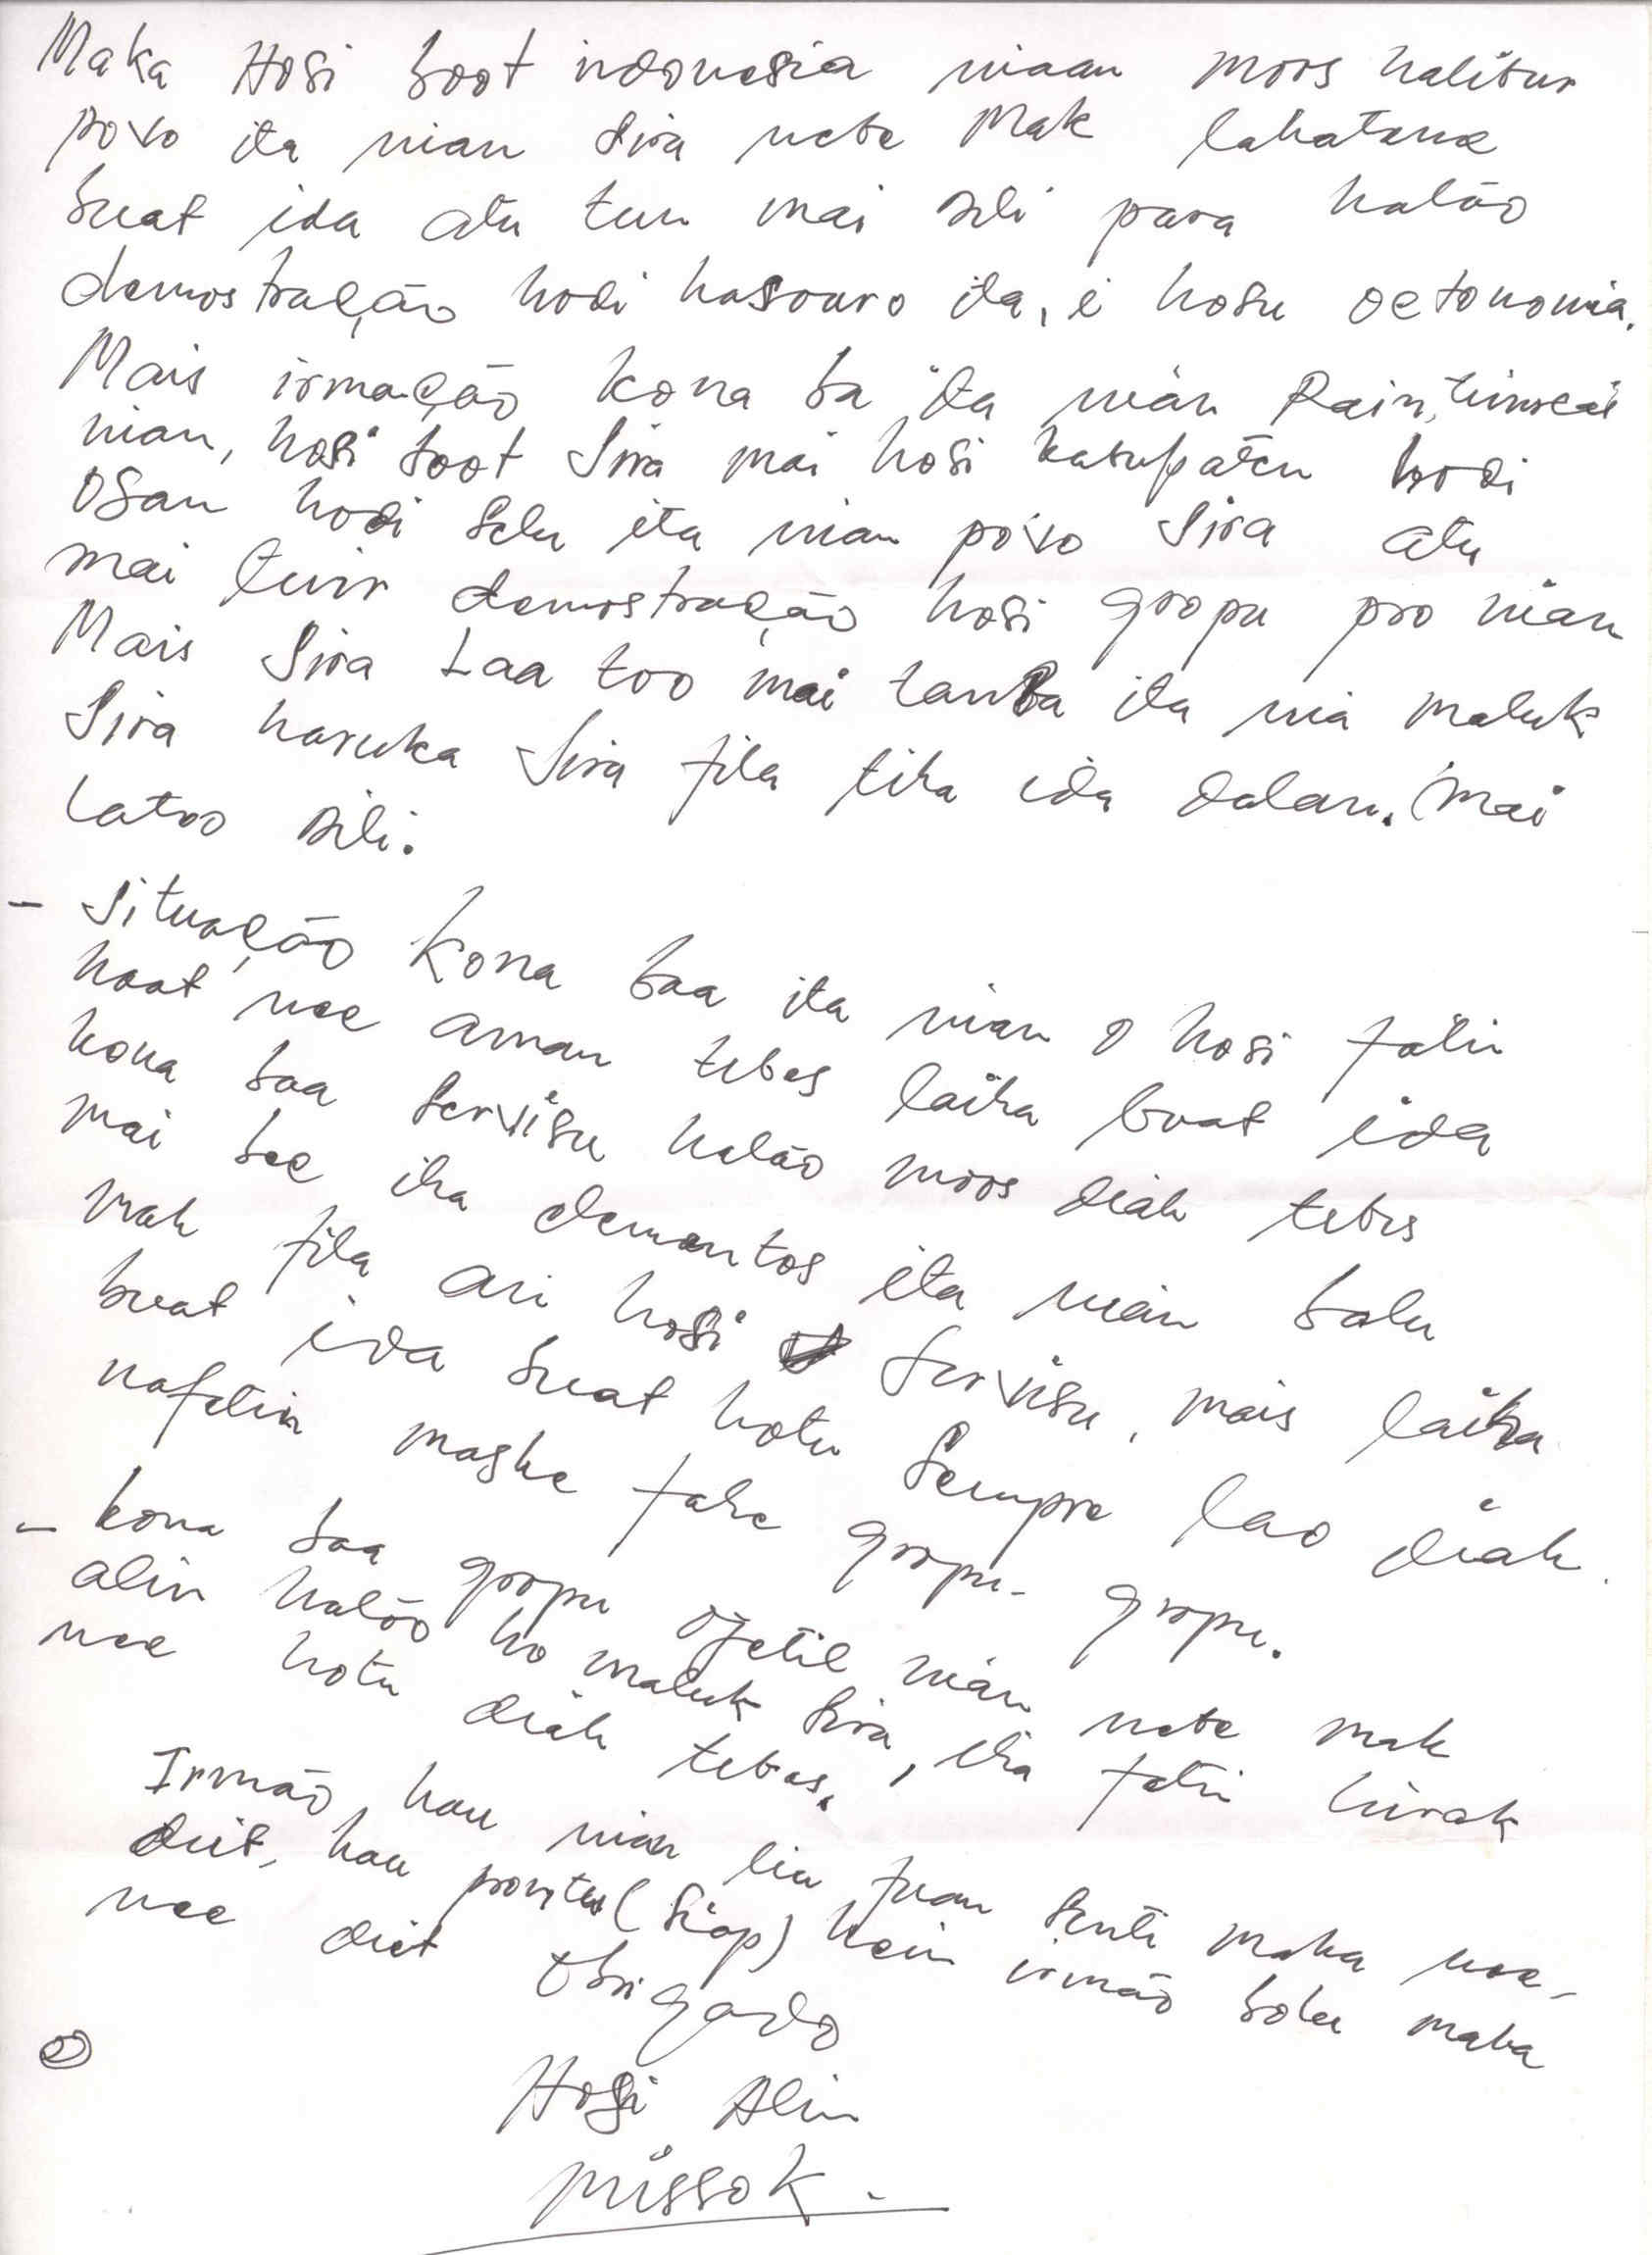 Maka Hosi boot indonesia niaan moos halibur
povo ita nian sira nebe mak lahatene
buat ida atu tun mai Dili para halāo
demostração hodi hasouro ita, i hosu oetonomia.
Mais irmação kona ba ita niān Rain, timoeal
nian, hosi boot sira mai hosi kabupaten hodi
osan hodi selu ita nian povo sira atu
mai tuir demostração hosi gropu pro niān
Mais sira Laa too mai tanba ita niā maluk
sira haruka sira fila tiha ida dalan. Mai
latoo Dili.
- Situação kona baa ita nian o hosi fatin
haat nee aman tebes laiha buat ida
kona baa servisu halāo moos diāk tebes
mai bee iha elemantos ita niān balu
mak fila an hosi servisu, mais laiha
buat ida buat hotu sempre lao diāk.
nafatin maske fahe gropu-gropu.
- kona baa gropu ojetil niān nebe mak
alin halāo ho maluk sira, iha fatin hirak
nee hotu diāk tebes.
Irmão hau niān lia fuan senti maka nee-
deit, hau prontu (siap) hein irmāo bolu maka
nee deit
Obrigado
2
Hosi Alin
Missok.